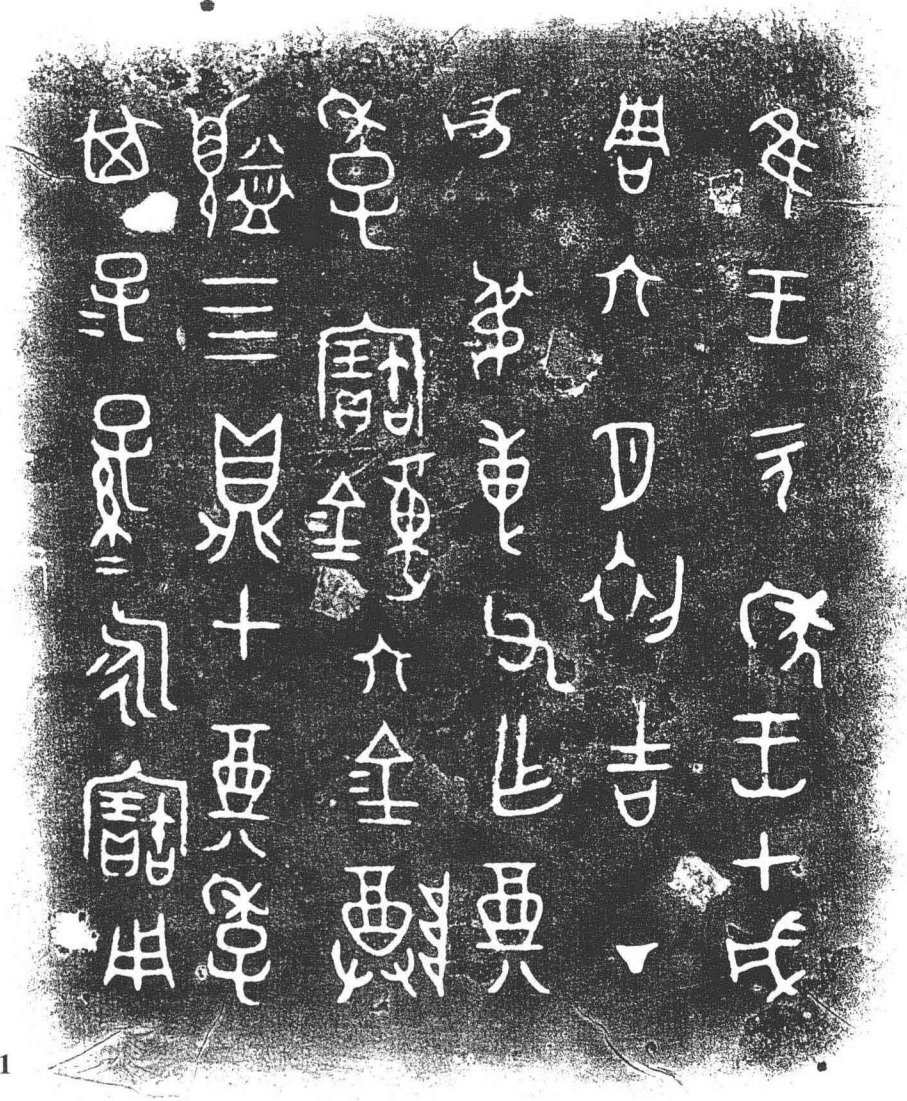 隹王元年王才成
周六月初吉丁
亥叔專父乍奠
季寶鐘六金尊
盨四鼎七奠季
其子=孫=永寶用
1